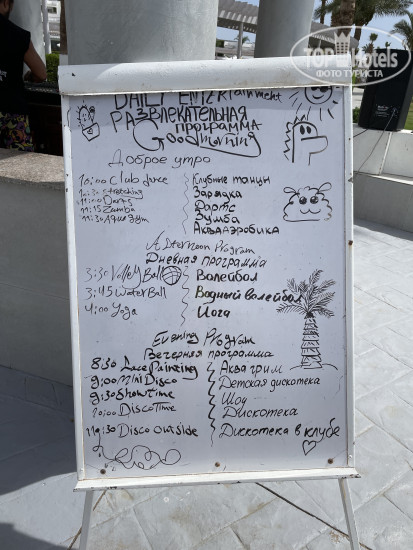 TopHotels
ФОТО ТУРИСТА
DAILY ENTERtainment
РАЗВЛЕКАТЕЛЬНАЯ
программа
Good morning
Доброе утро
10:00 Club Dance Клубные танцы
10:30 stretching Зарядка
11:00 Darts Дартс
11:15 Zumba Зумба
11:30 Aqua gym Аквааэробика
Afternoon Program
Дневная программа
3:30 Volley Ball Волейбол
3:45 Water Ball Водный волейбол
4:00 Yoga Йога
Evening Program
Вечерняя программа
8:30 Face Painting Аква грим
9:00 Mini Disco Детская дискотека
9:30 Show Time Шоу
10:00 Disco Time Дискотека
11:30 Disco outside Дискотека в клубе